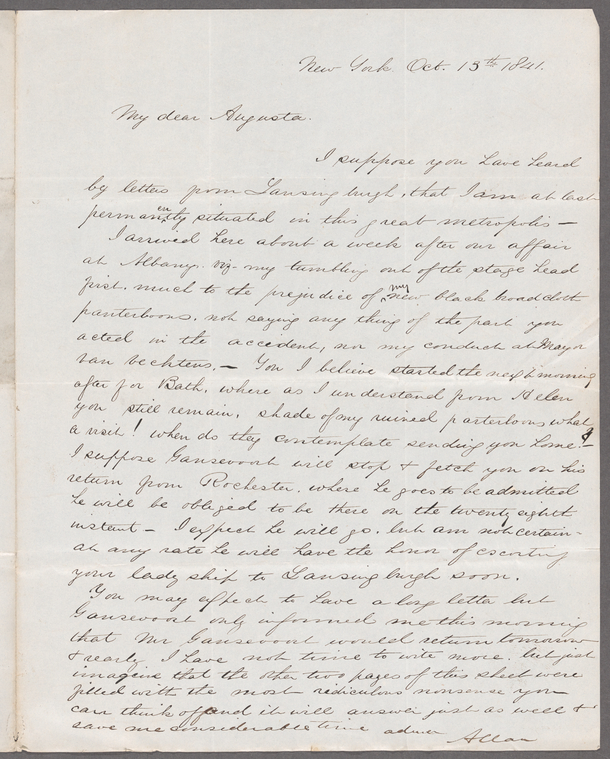 New York. Oct. 13th 1841.
My dear Augusta.
I suppose you have heard
by letters from Lansingburgh, that I am at last
permanently situated in this great metropolis —
I arrived here about a week after our affair
at Albany. viz- my tumbling out of the stage head
first, much to the prejudice of my new black broadcloth
panterloons, not saying any thing of the part you
acted in the accident, nor my conduct at Mayor
van vechtens. — You I believe started the next morning
afar for Bath, where as I understand from Helen
you still remain, shade of my ruined panterloons what
a visit! when do they contemplate sending you home? —
I suppose Gansevoort will stop & fetch you on his
return from Rochester, where he goes to be admitted
he will be obliged to be there on the twenty eighth
instant — I expect he will go, but am not certain -
at any rate he will have the honor of escorting
your lady ship to Lansingburgh soon.
You may expect to have a long letter but
Gansevoort only informed me this morning
that Mr Gansevoort would return tomorrow
& realy I have not time to write more. but just
imagine that the other two pages of this sheet were
filled with the most rediculous nonsense you
can think of and it will answer just as well &
save me considerable time adieu
Allan